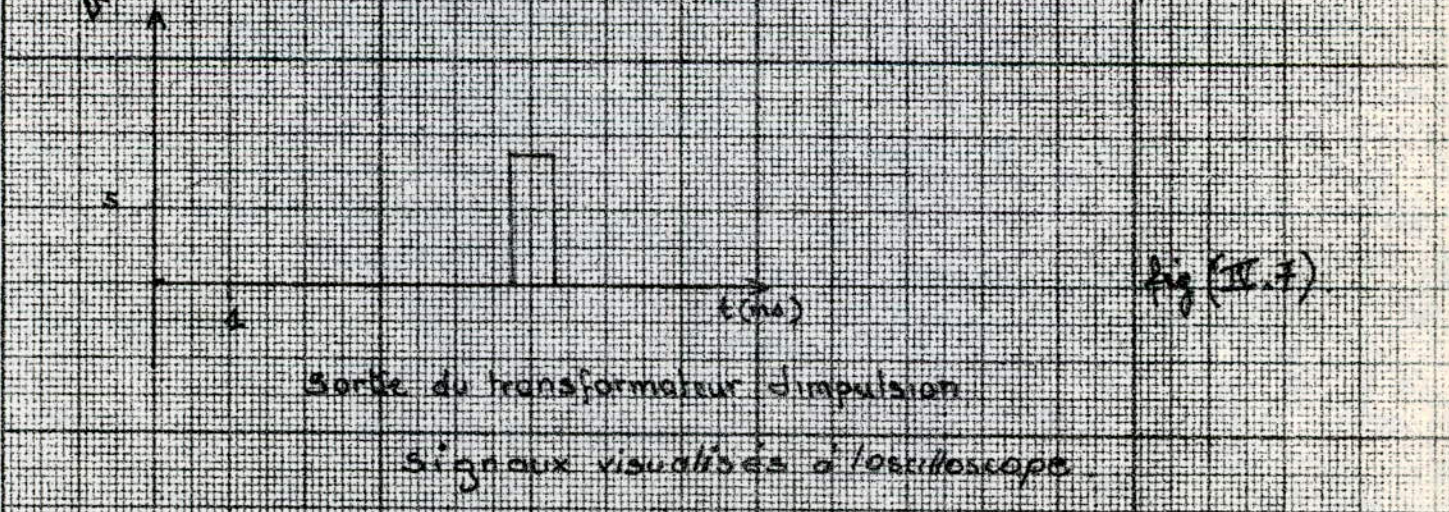 V
5
fig (IV.7).
1
t(ms)
sortie du transformateur d'impulsion
signaux visualisés à l'oscilloscope.